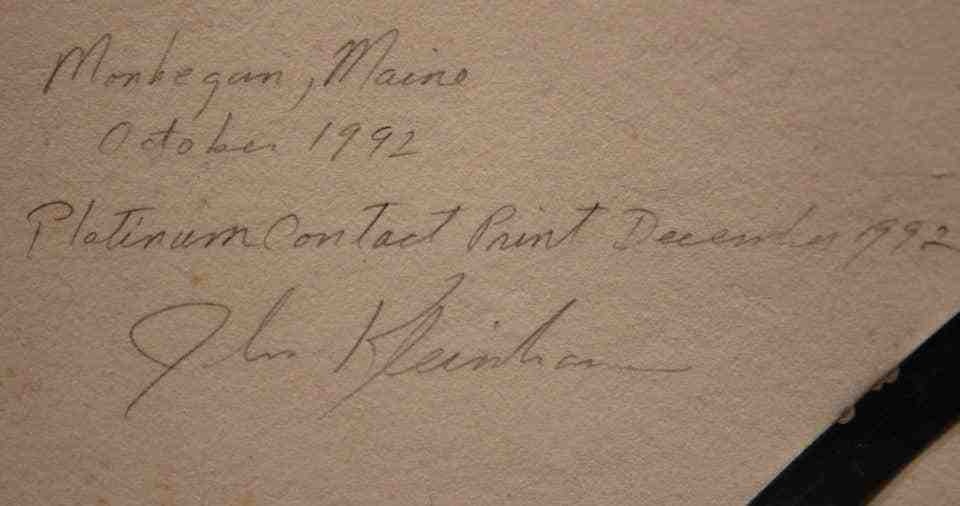 Monhegan, Maine
October 1992
Platinum Contact Print December 1992
John Kleinhans